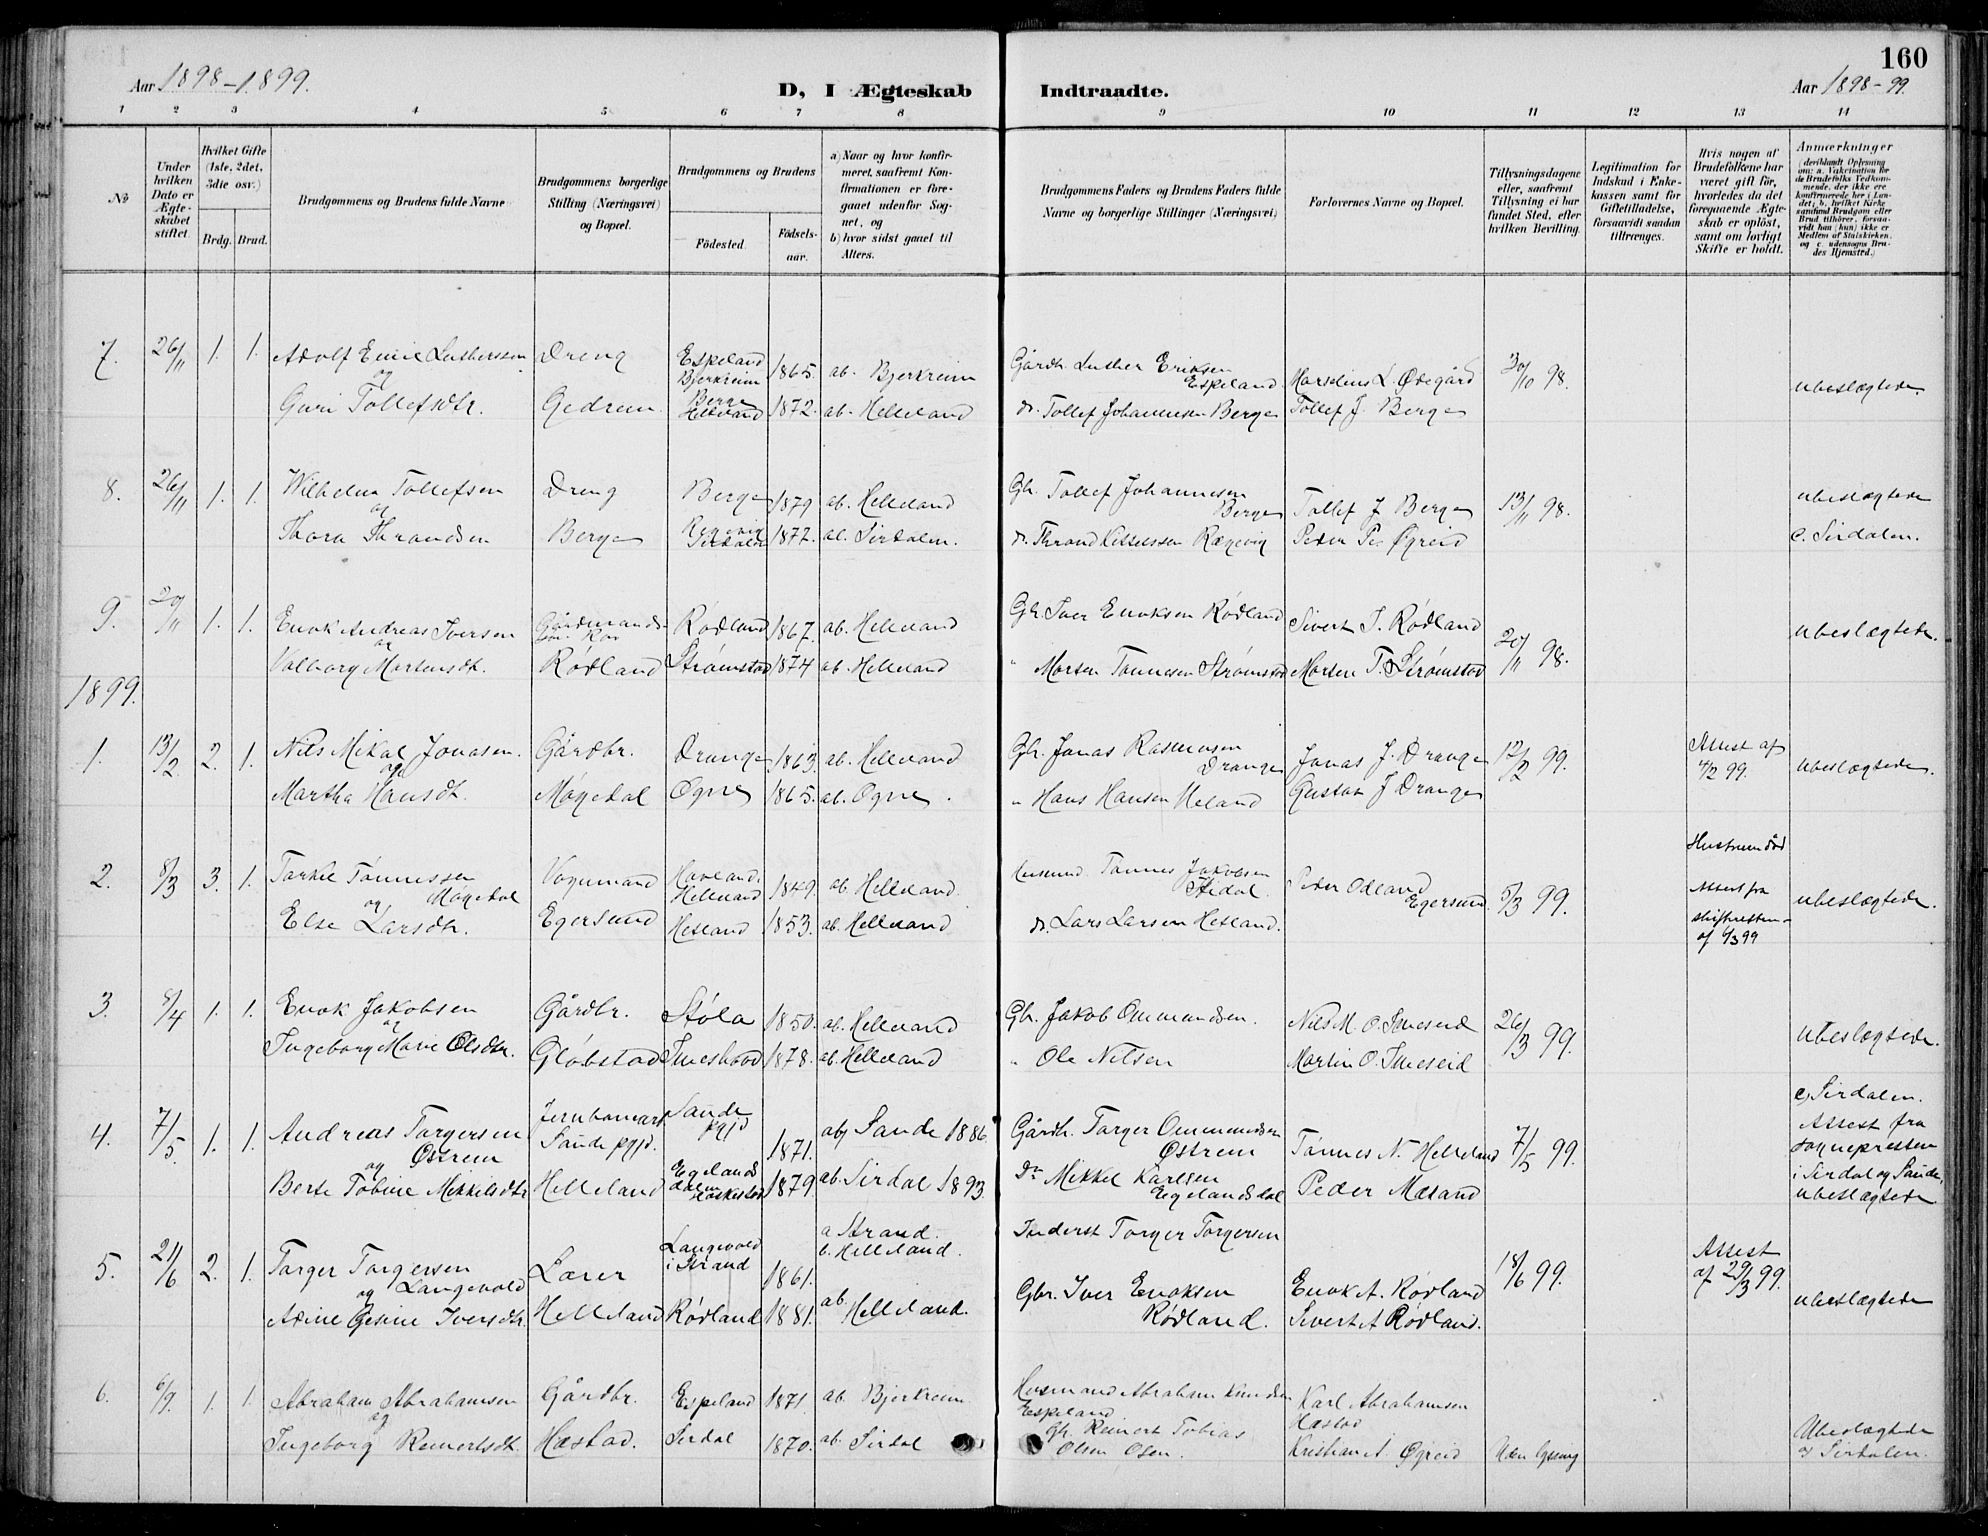 160
Aar 1898-1899.
D, I Ægteskab Indtraadte.
Aar 1898-99.
1 2 3 4 5 6 7 8 9 10 11 12 13 14
No
Under hvilken Dato er Ægteskabet stiftet.
Hvilket Gifte (1ste, 2det, 3die osv.)
Brdg. Brud.
Brudgommens og Brudens fulde Navne
Brudgommens borgerlige Stilling (Næringsvei) og Bopæl.
Brudgommens og Brudens
Fødested.
Fødselsaar.
a) Naar og hvor konfirmeret, saafremt Konfirmationen er foregaaet udenfor Sognet, og
b) hvor sidst gaaet til Alters.
Brudgommens Faders og Brudens Faders fulde Navne og borgerlige Stillinger (Næringsvei)
Forlovernes Navne og Bopæl.
Tillysningsdagene eller, saafremt Tillysning ei har fundet Sted, efter hvilken Bevilling.
Legitimation for Indskud i Enkekassen samt for Giftetilladelse, forsaavidt saadan tiltrænges.
Hvis nogen af Brudefolkene har været gift før, hvorledes da det foregaaende Ægteskab er opløst, samt om lovligt Skifte er holdt.
Anmærkninger (deriblandt Oplysning om: a. Vakcination for de Brudefolks Vedkommende, der ikke ere konfirmerede her i Landet; b. hvilket Kirkesamfund Brudgom eller Brud tilhører, forsaavidt han (hun) ikke er Medlem af Statskirken, og c. udensogns Brudes Hjemsted.)
7. 26/11 1. 1. Adolf Emil Luthersen Dreng Espeland Bjerkreim 1865. ab. Bjerkreim Gårdbr. Luther Eriksen Espeland Marselius L. Ødegård 30/10 98. ubeslægtede.
og
Guri Tollefsdtr. Gedrem Berge Helleland 1872. ab. Helleland do. Tollef Johannesen Berge Tollef J. Berge
8. 26/11 1. 1. Wilhelm Tollefsen Dreng Berge 1879 ab. Helleland Gbr. Tollef Johannesen Berge Tollef J Berge 13/11 98. ubeslægtede
og
Thora Thrandsen Berge Sirdalen 1877. ab. Sirdalen. do. Thrand Rægevig Peder Øgreid c. Sirdalen.
9. 1. 1. Enok Andreas Iversen Gårdmands Rødland 1867. ab. Helleland Gbr Iver Enoksen Rødland Sivert I. Rødland 20/11 98. ubeslægtede.
og
Valborg Mortensdt. Rødland Strømstad 1874 ab. Helleland " Morten Tønnesen Strømstad Morten T. Strømstad
1899.
1. 13/2 2. 1. Nils Mikal Jonasen. Gårdbr. Drange 1863. ab. Helleland Gbr. Jonas Rasmusen Drange Jonas J. Drange 12/2 99. Attest af 4/2 99. ubeslægtede.
og
Martha Hansdt. Møgedal Ogne 1865. ab. Ogne. " Hans Hansen Ueland Gustav J Drange
2. 8/3 3. 1. Torkel Tønnessen Møgedal Vognmand Hovland Helleland 1849. ab. Helleland. Husmd Tønnes Jakobsen Peder Odland Egersund 5/3 99. Hustruen død Attest fra skifteretten af 6/3 99 ubeslægtede.
og
Else Larsdtr. Egersund Hetland 1853. ab. Helleland do. Lars Larsen Hetland.
3. 8/4 1. 1. Enok Jakobsen Gårdbr. Støla 1850. ab. Helleland Gbr. Jakob Ommundsen. Nils M. O. Imeseid 26/3 99. ubeslægtede.
og
Ingeborg Marie Olsdtr. Gløbstad 1878. ab. Helleland " Ole Nilsen Martin O. Imeseid
4. 7/5 1. 1. Andreas Torgersen Østrem Sande pgjd. Sande pgjd 1871. ab Sande 1886. Gårdbr. Torger Ommundsen Østrem Tønnes N. Helleland 7/5 99. c, Sirdalen. Attest fra sognepresten i Sirdal og Sande, ubeslægtede
og
Berte Tobine Mikkelsdtr Helleland Egelandsdalen 1879. ab. Sirdal 1893. Do Mikkel Karlsen Egelandsdal Peder Mæsand
5. 21/6 2. 1. Torger Torgersen Langevold Lærer Langevold i Strand 1861. a Strand. b. Helleland. Inderst Torger Torgersen 18/6 99. Attest af 29/3 99. ubeslægtede
og
Adine Gesine Iversdtr. Helleland Rødland 1881. ab. Helleland. Gbr. Iver Enoksen Rødland. Enok A. Rødland Sivert A Rødland.
6. 6/9. 1. 1. Abraham Abrahamsen Gårdbr. Espeland 1871. ab. Bjerkreim Husmand Abraham Knudsen Espeland Karl Abrahamsen Hæstad
og
Ingeborg Reinertsdt. Hæstad. Sirdal 1870. ab. Sirdal Gbr. Reinert Tobias Olsen Osen. Kristian A. Øgreid Uden lysning Ubeslægtede Sirdalen.